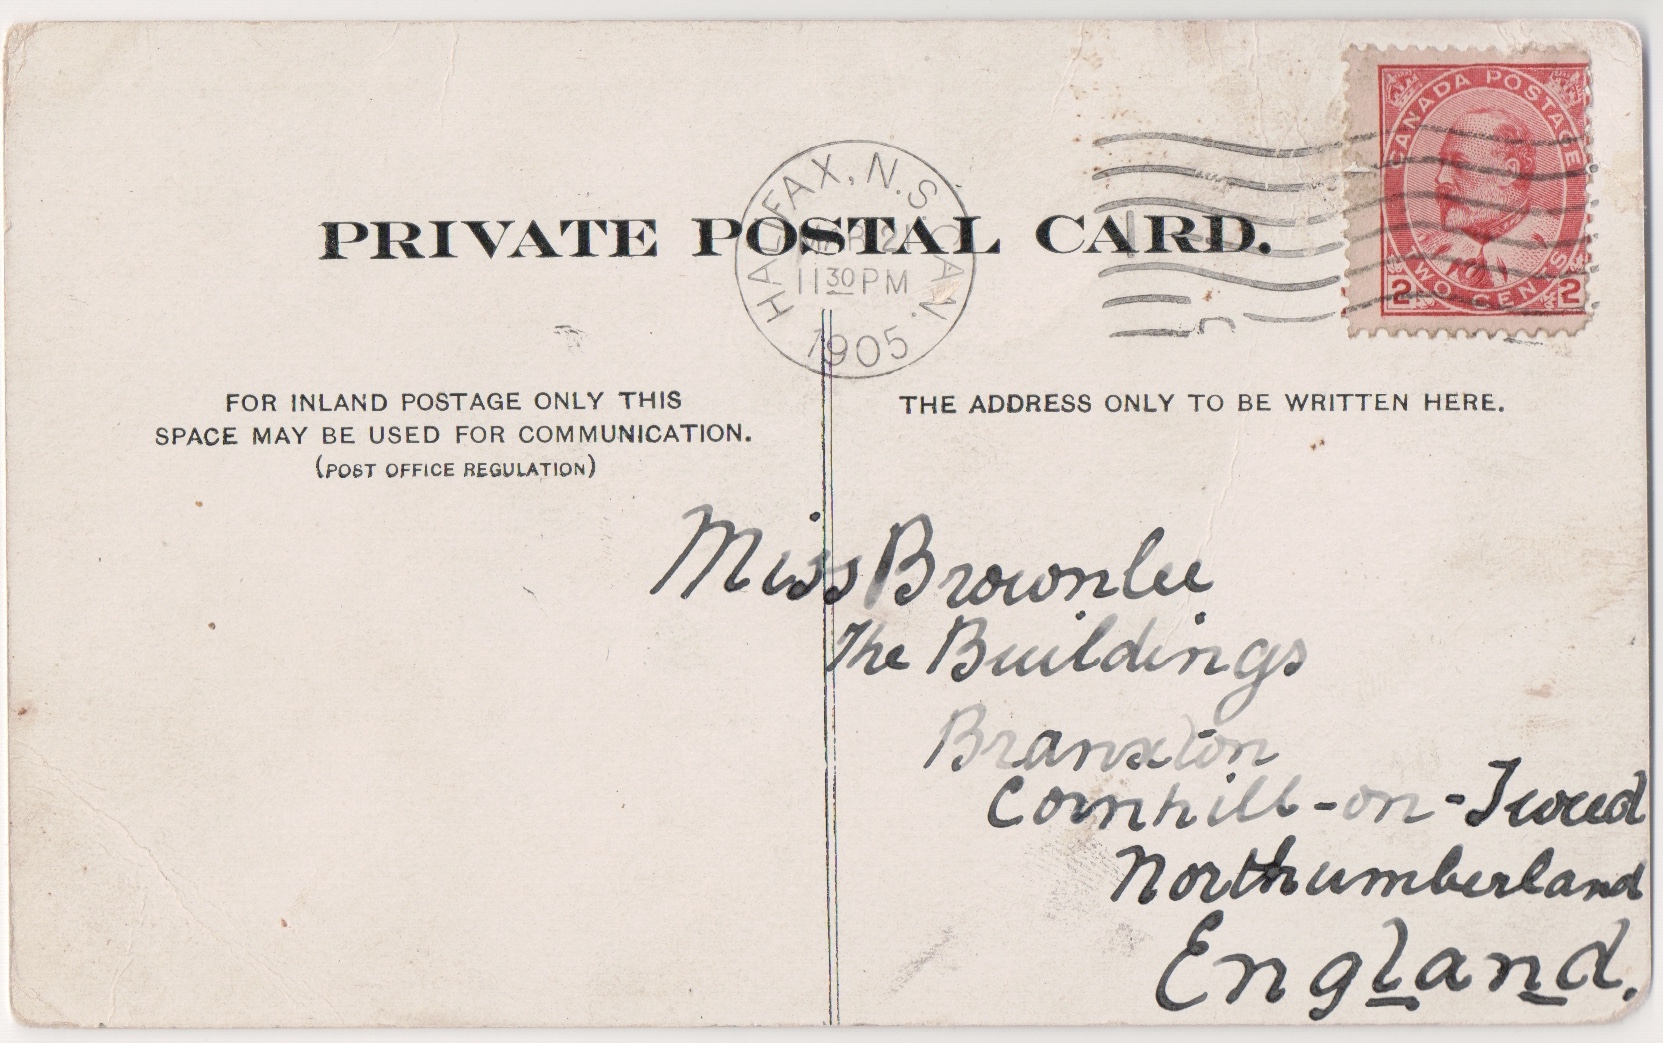 CANADA POSTAGE
TWO CENTS
2 2
HALIFAX, N.S. CAN.
MAR 21
11 30 PM
1905
PRIVATE POSTAL CARD.
FOR INLAND POSTAGE ONLY THIS
SPACE MAY BE USED FOR COMMUNICATION.
(POST OFFICE REGULATION)
THE ADDRESS ONLY TO BE WRITTEN HERE.
Miss Brownlee
The Buildings
Branxton
Cornhill-on-Tweed
Northumberland
England.